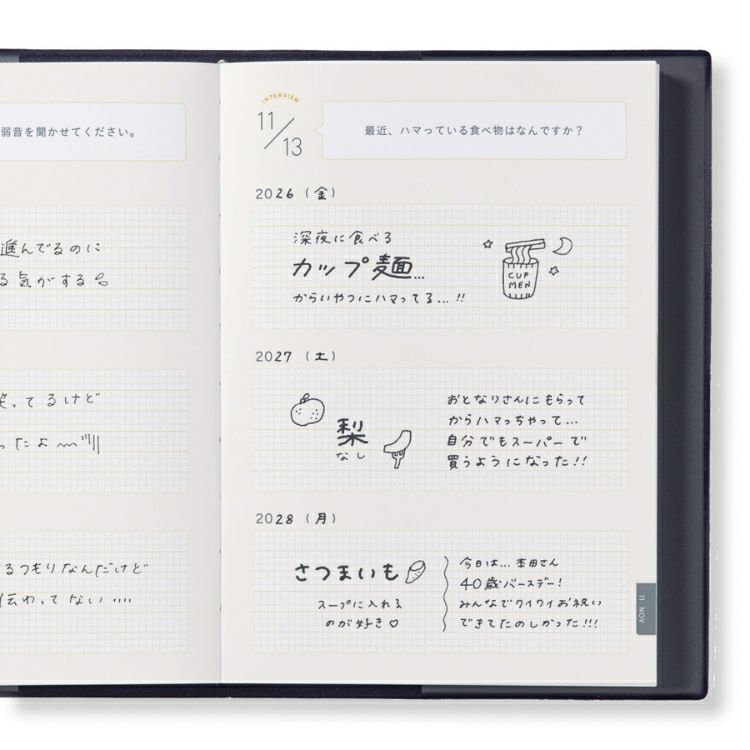 弱音を聞かせてください。
進んでるのに
る気がする
笑ってるけど
ったよ
るつもりなんだけど
伝わってない....
INTERVIEW
11/13
最近、ハマっている食べ物はなんですか？
2026 (金)
深夜に食べる
カップ麺...
からいやつにハマってる...!!
CUP
MEN
2027 (土)
梨
なし
おとなりさんにもらって
からハマっちゃって...
自分でもスーパーで
買うようになった!!
2028 (月)
さつまいも
スープに入れる
のが好き♡
今日は...本田さん
40歳バースデー!
みんなでワイワイお祝い
できてたのしかった!!!
11 NOV